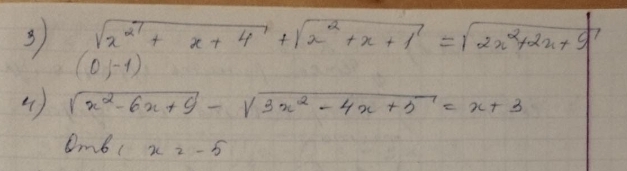 3) √(x² + x + 4) + √(x² + x + 1) = √(2x² + 2x + 9)
(0; -1)
4) √(x² - 6x + 9) - √(3x² - 4x + 5) = x + 3
Отв: x = -5